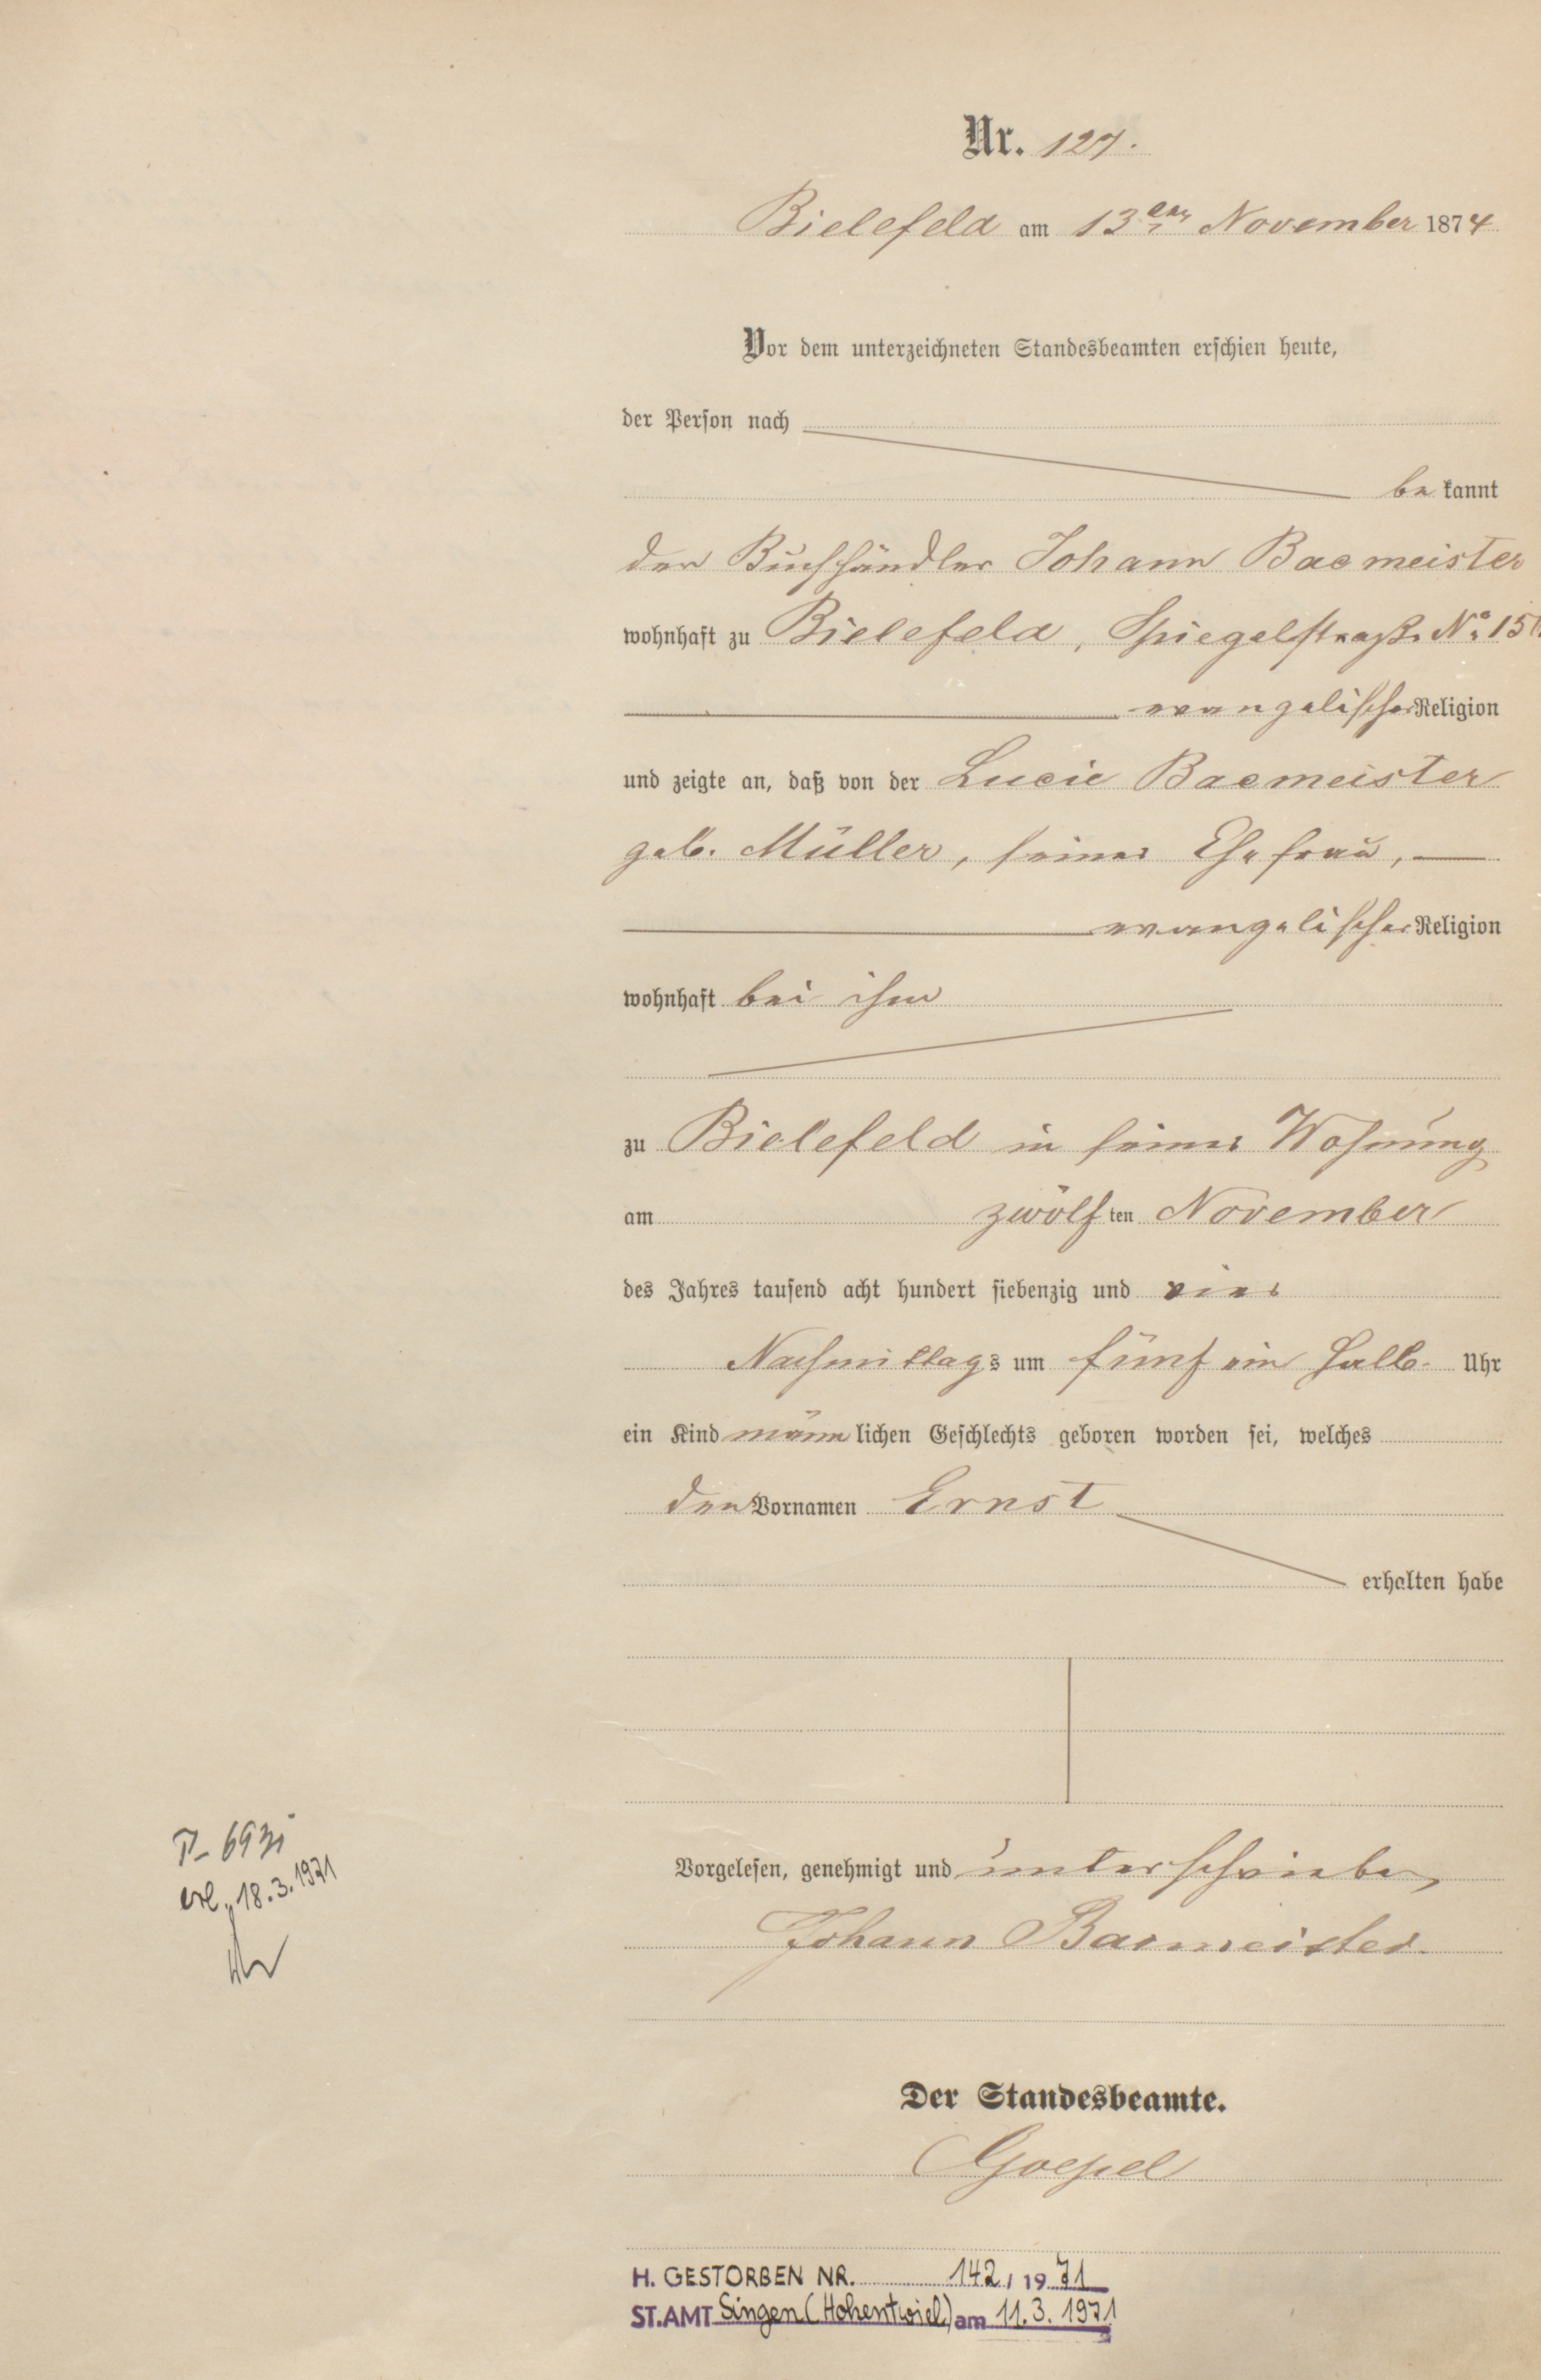 Nr. 127.
Bielefeld am 13ten November 1874
Vor dem unterzeichneten Standesbeamten erschien heute,
der Person nach
be kannt
der Buchhändler Johann Bacmeister
wohnhaft zu Bielefeld, Spiegelstraße No.
evangelischer Religion
und zeigte an, daß von der Lucie Bacmeister
geb. Müller, seiner Ehefrau,
evangelischer Religion
wohnhaft bei ihm
zu Bielefeld in seiner Wohnung
am zwölf ten November
des Jahres tausend acht hundert siebenzig und vier
Nachmittags um fünf ein halb Uhr
ein Kind männ lichen Geschlechts geboren worden sei, welches
den Vornamen Ernst
erhalten habe
Vorgelesen, genehmigt und unterschrieben
Johann Bacmeister.
Der Standesbeamte.
Goepel
erl. 18.3.1971
H. GESTORBEN NR. 142 / 19 71
ST.AMT Singen (Hohentwiel) am 11.3.1971